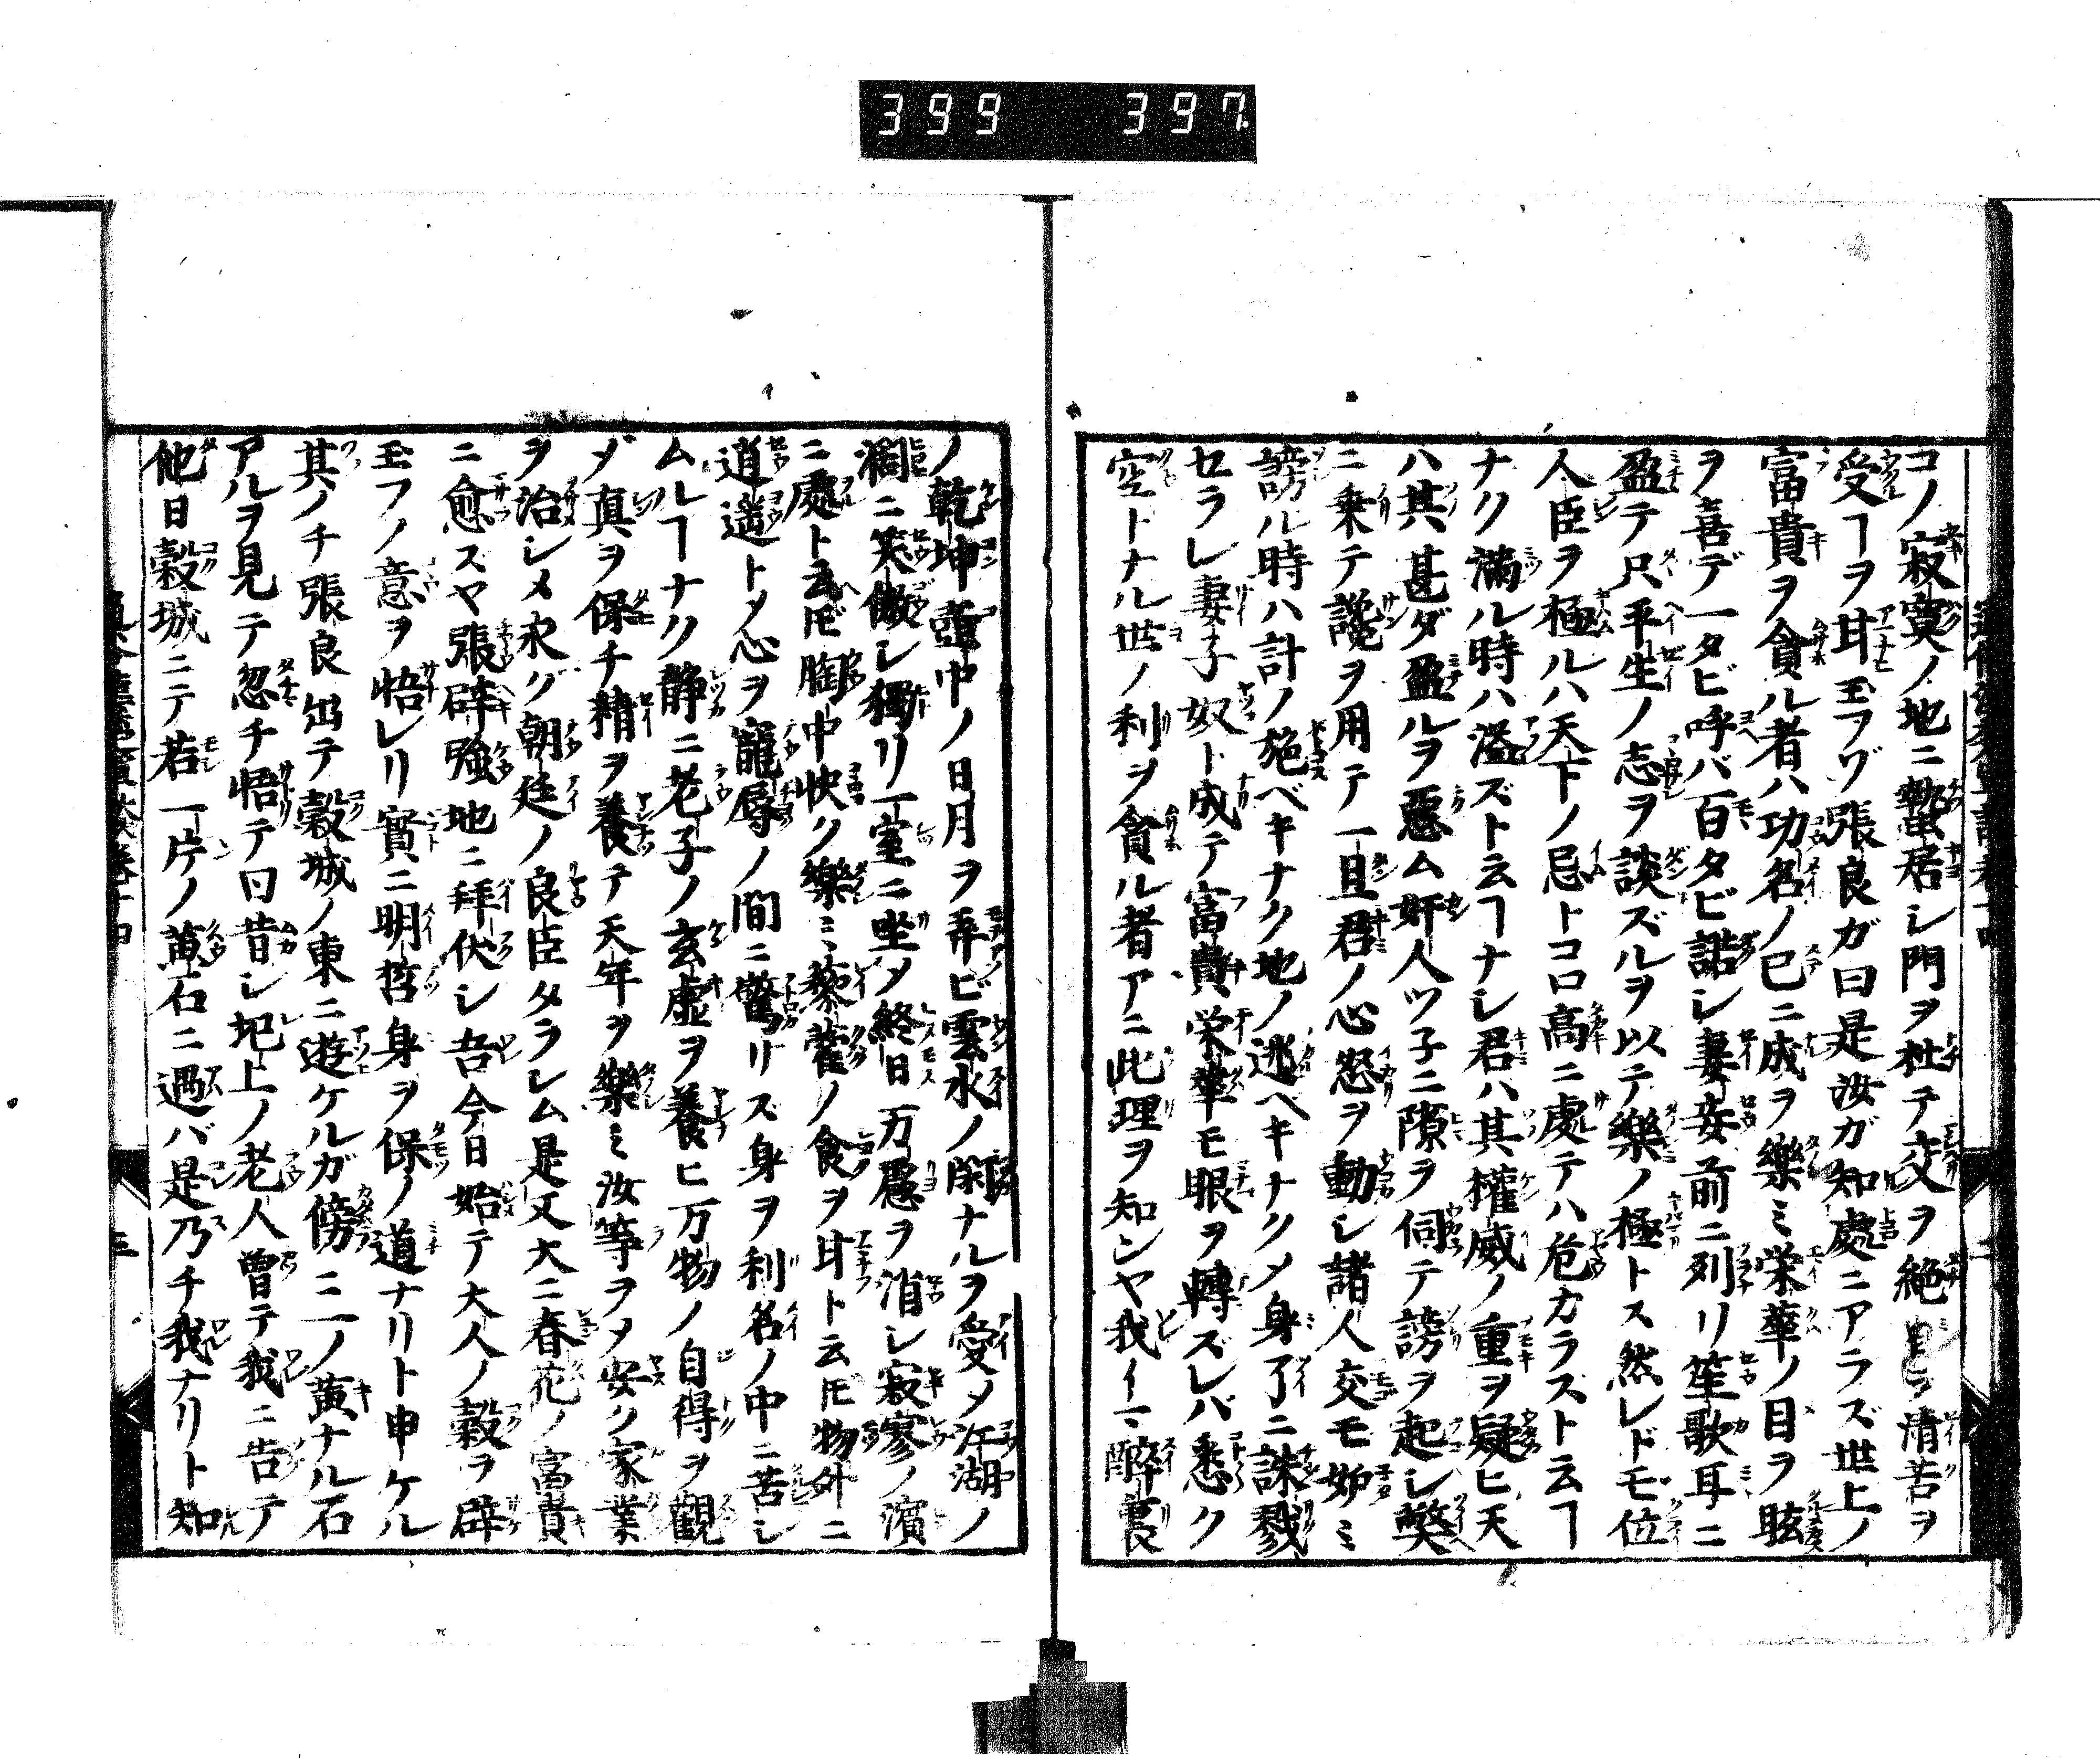 399 397
コノ寂寞ノ地ニ蟄居シ門ヲ杜テ交ヲ絶 清苦ヲ
受ヿヲ甘玉フゾ張良ガ曰是汝ガ知處ニアラズ世上ノ
富貴ヲ貪ル者ハ功名ノ已ニ成ヲ樂ミ栄華ノ目ヲ眩
ヲ喜デ一タビ呼バ百タビ諾シ妻妾前ニ列リ笙歌耳ニ
盈テ只平生ノ志ヲ談ズルヲ以テ樂ノ極トス然レドモ位
人臣ヲ極ルハ天下ノ忌トコロ高ニ處テハ危カラスト云ヿ
ナク満ル時ハ溢ズト云ヿナシ君ハ其權威ノ重ヲ疑ヒ天
ハ其甚ダ盈ルヲ惡ム奸人ツ子ニ隙ヲ伺テ謗ヲ起シ弊
ニ乗テ讒ヲ用テ一旦君ノ心怒ヲ動シ諸人交モ妒ミ
謗ル時ハ計ノ施ベキナク地ノ逃ヘキナクメ身了ニ誅戮
セラレ妻子奴ト成テ富貴栄華モ眼ヲ轉ズレバ悉ク
空トナル世ノ利ヲ貪ル者アニ此理ヲ知ンヤ我イマ醉裏
ノ乾坤壷中ノ日月ヲ弄ビ雲水ノ閑ナルヲ受メ江湖ノ
濶ニ笑傲シ獨リ一室ニ坐メ終日万慮ヲ消シ寂寥ノ濱
ニ處ト云𪜈胸中快ク樂ミ藜藿ノ食ヲ甘ト云𪜈物外ニ
逍遥トメ心ヲ寵辱ノ間ニ驚リス身ヲ利名ノ中ニ苦シ
ムルヿナク静ニ老子ノ玄虚ヲ養ヒ万物ノ自得ヲ觀
ゾ真ヲ保チ精ヲ養テ天年ヲ樂ミ汝等ヲメ安ク家業
ヲ治シメ永グ朝廷ノ良臣タラシム是又大ニ春花ノ富貴
ニ愈スヤ張辟強地ニ拜伏シ吾今日始テ大人ノ穀ヲ辟
玉フノ意ヲ悟レリ實ニ明哲身ヲ保ノ道ナリト申ケル
其ノチ張良出テ穀城ノ東ニ遊ケルガ傍ニ一ノ黄ナル石
アルヲ見テ忽チ悟テ曰昔シ圯上ノ老人曽テ我ニ告テ
他日穀城ニテ若一片ノ黄石ニ遇バ是乃チ我ナリト知